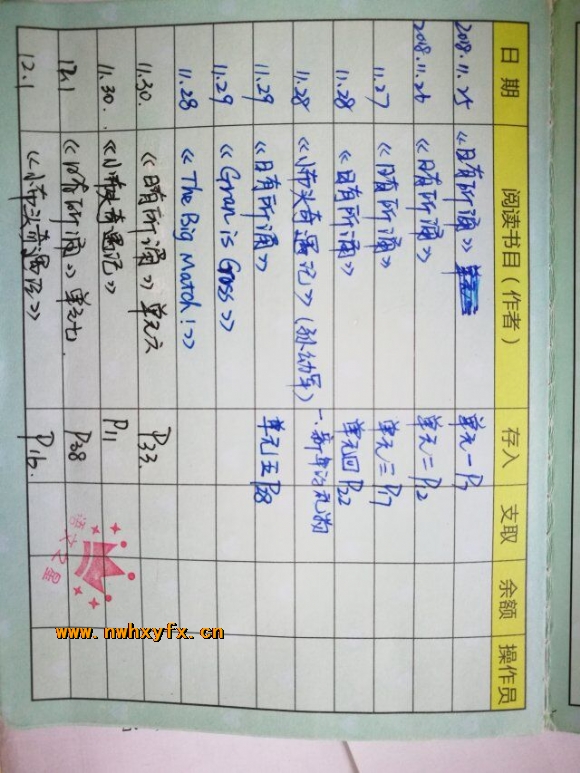 日期 阅读书目（作者） 存入 支取 余额 操作员
2018.11.25 《日有所诵》 单元一P7
2018.11.26 《日有所诵》 单元二P2
11.27 《日有所诵》 单元三P17
11.28 《日有所诵》 单元四P22
11.28 《小布头奇遇记》（孙幼军） 一、新年的礼物
11.29 《日有所诵》 单元五P28
11.29 《Gran is Gross》
11.28 《The Big Match!》
11.30. 《日有所诵》单元六 P33.
11.30. 《小布头奇遇记》 P11
12.1 《日有所诵》单元七. P38
12.1 《小布头奇遇记》 P16.
语文之星
www.nwhxyfx.cn